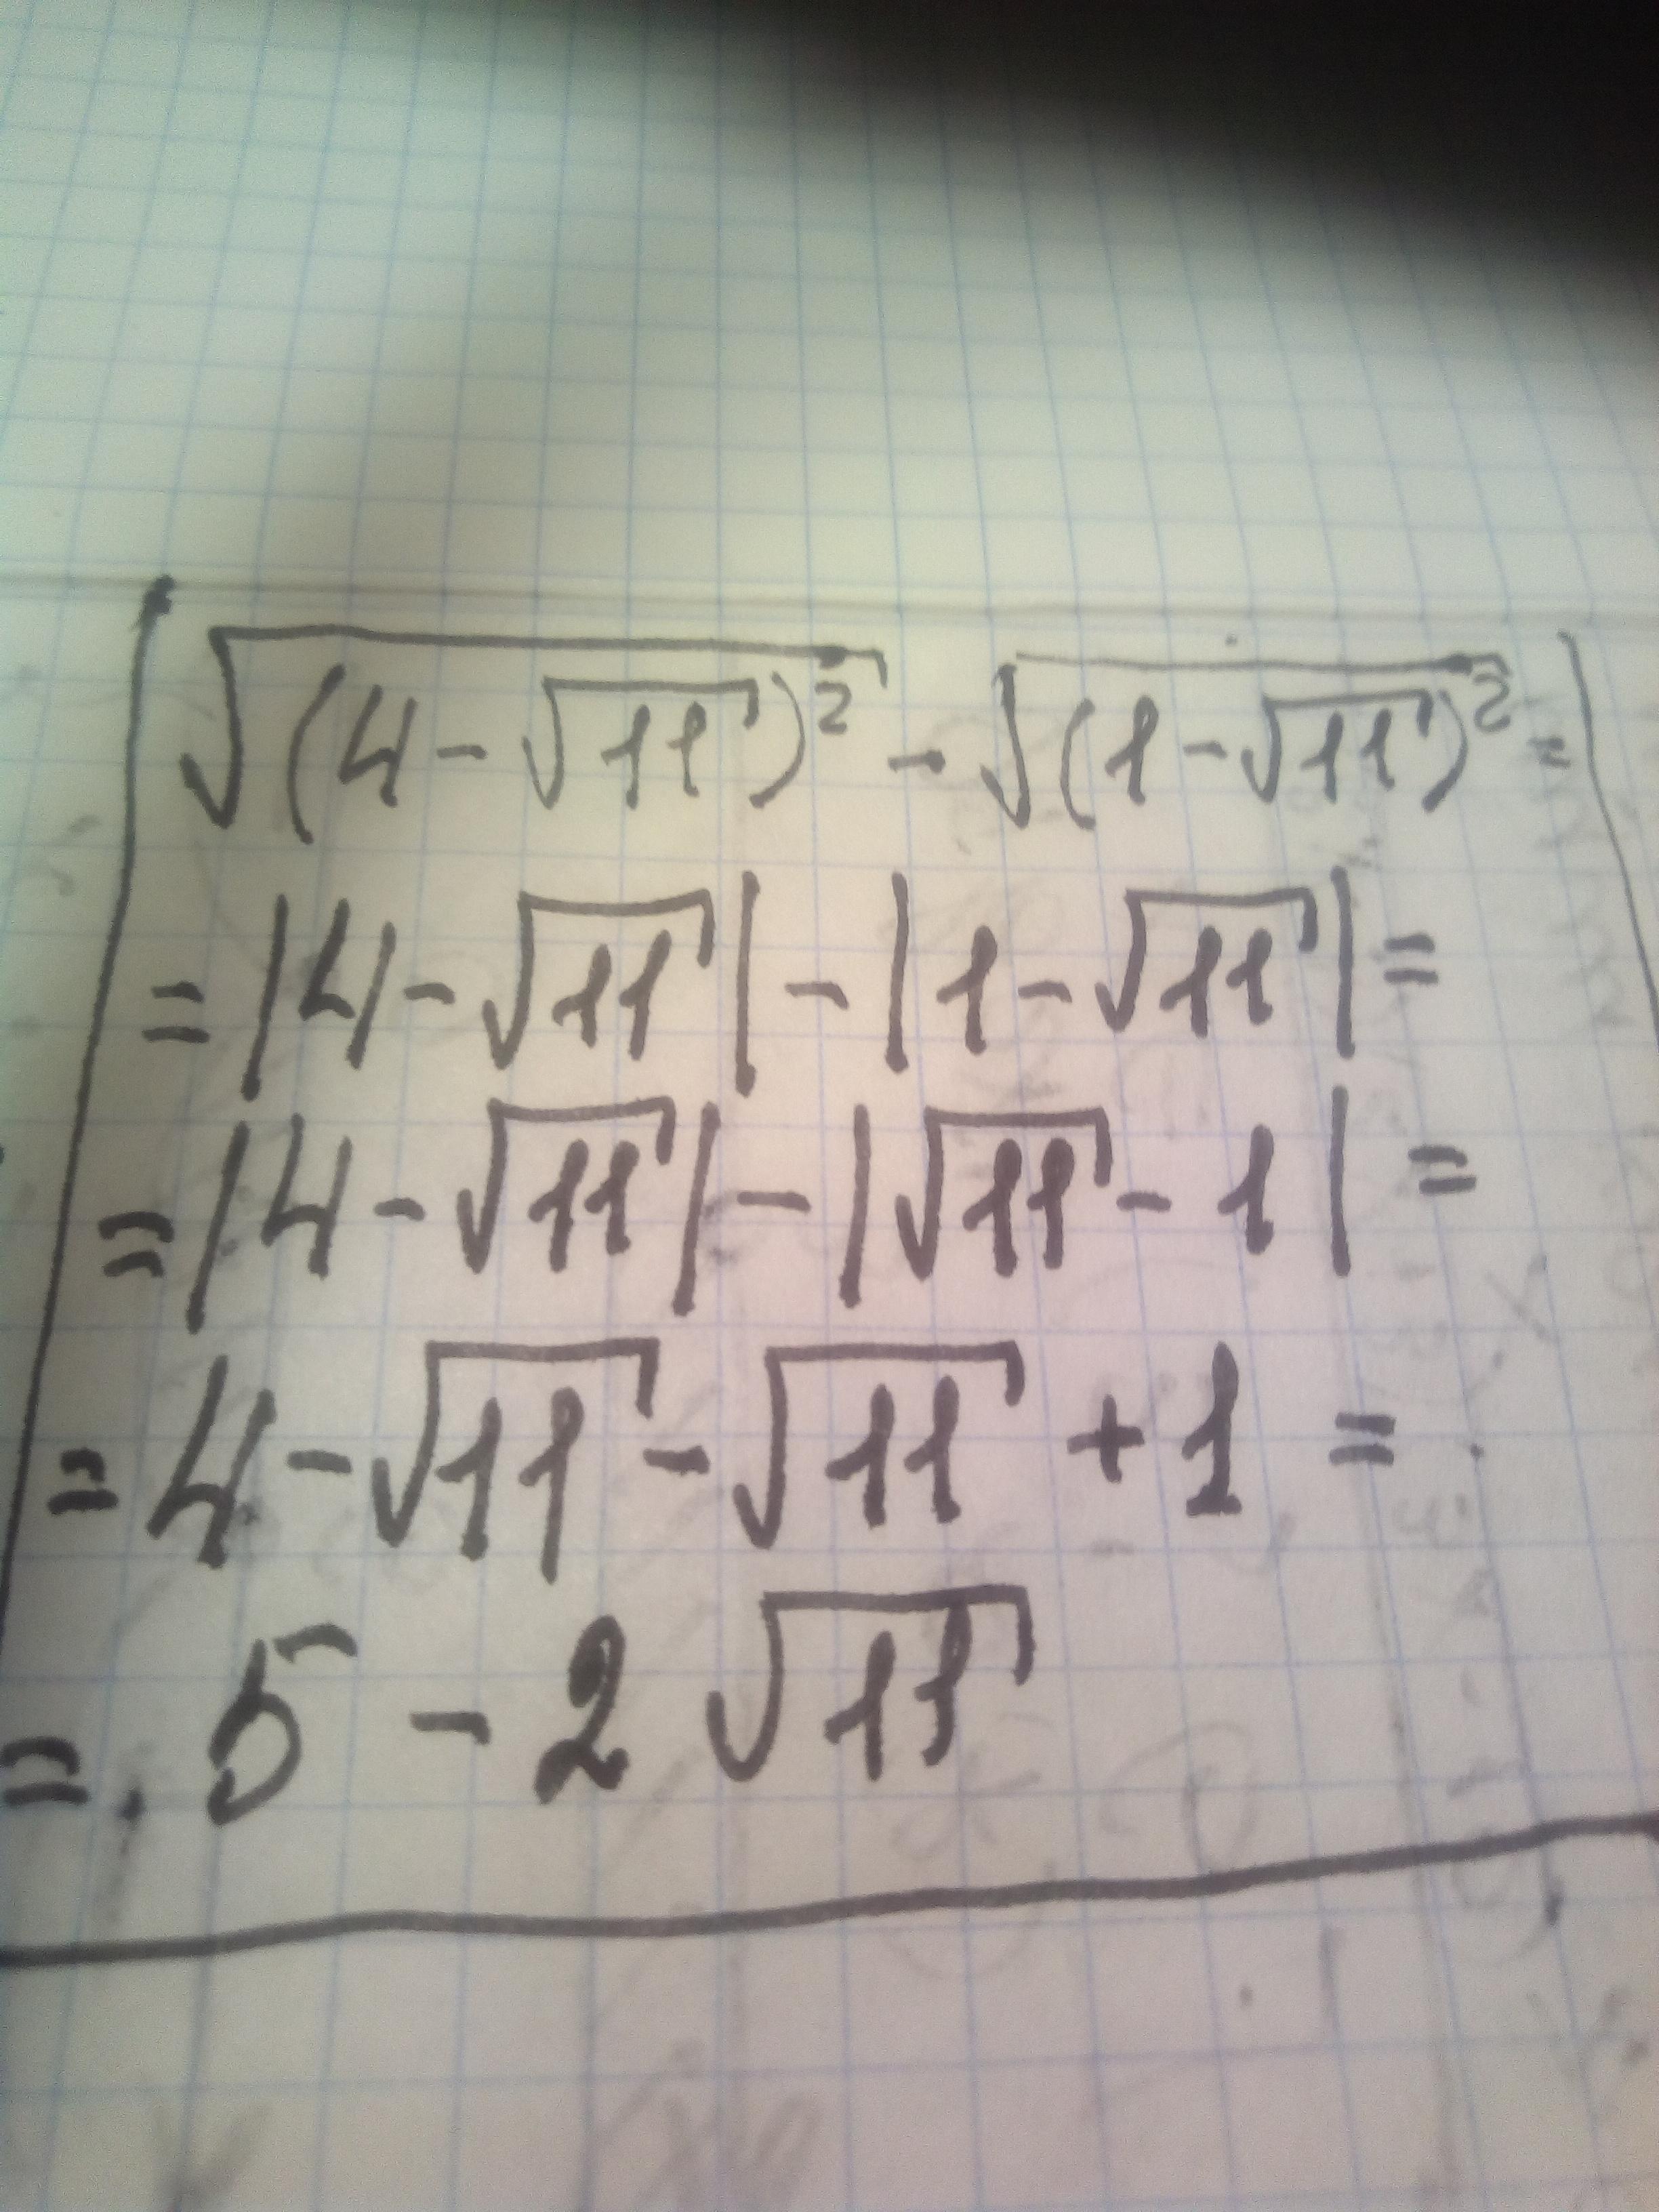 √(4-√11)² - √(1-√11)² =
= |4-√11| - |1-√11| =
= |4-√11| - |√11-1| =
= 4-√11 - √11 + 1 =
= 5 - 2√11